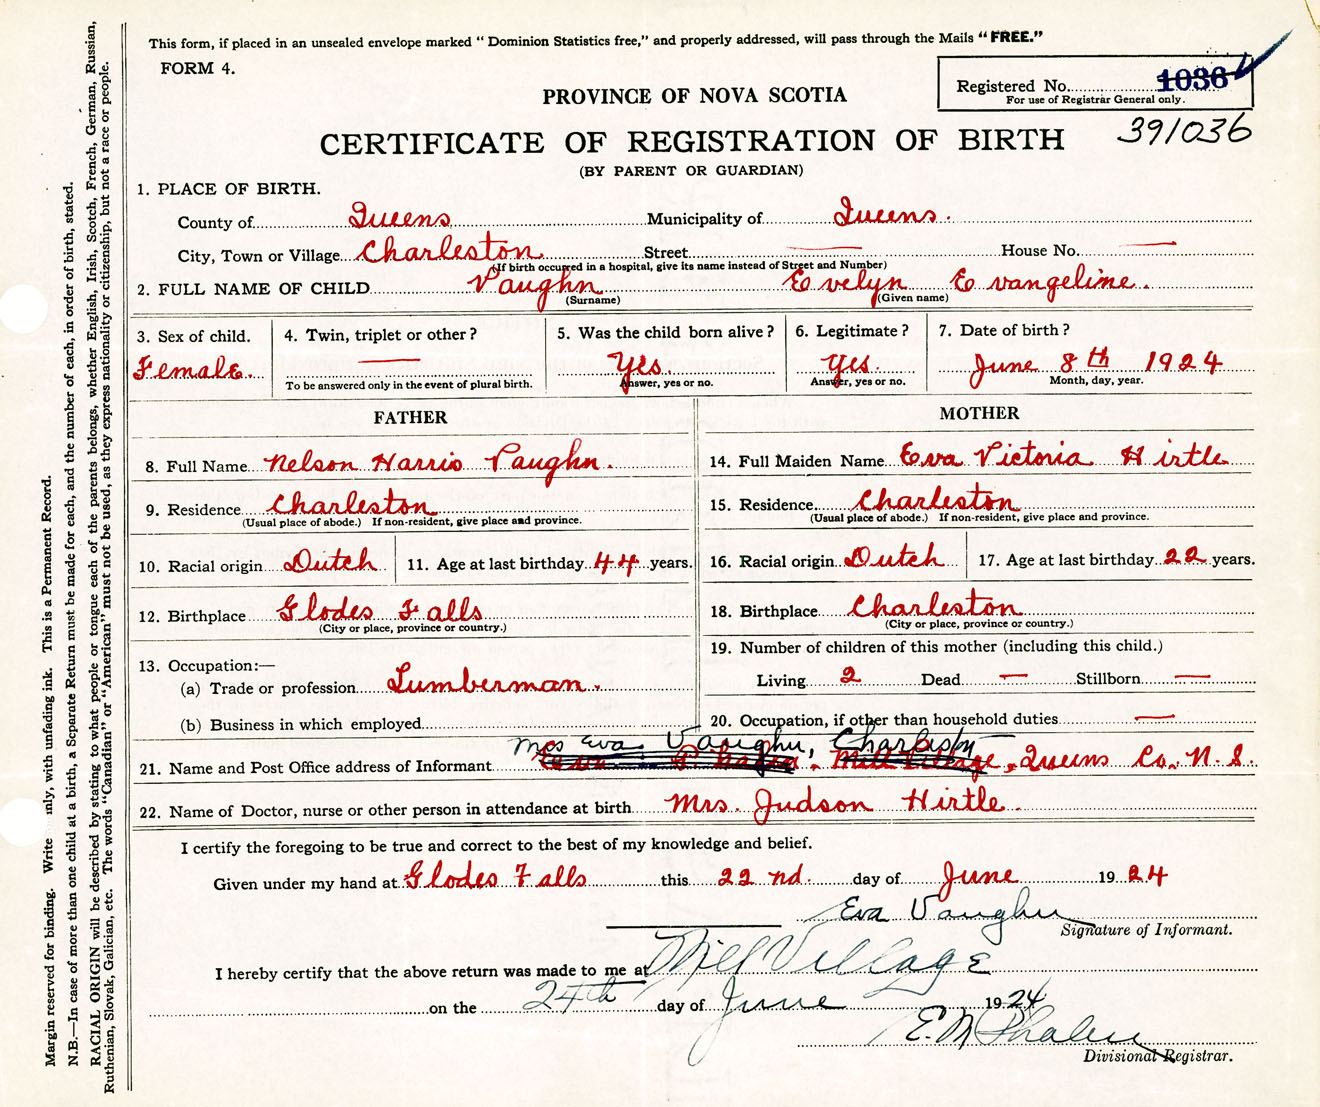 This form, if placed in an unsealed envelope marked “ Dominion Statistics free,” and properly addressed, will pass through the Mails “ FREE.”
FORM 4.
Registered No. 1036
For use of Registrar General only.
PROVINCE OF NOVA SCOTIA
CERTIFICATE OF REGISTRATION OF BIRTH 391036
(BY PARENT OR GUARDIAN)
1. PLACE OF BIRTH.
County of Queens Municipality of Queens.
City, Town or Village Charleston Street — House No. —
(If birth occurred in a hospital, give its name instead of Street and Number)
2. FULL NAME OF CHILD Vaughn Evelyn Evangeline.
(Surname) (Given name)
3. Sex of child. 4. Twin, triplet or other? 5. Was the child born alive? 6. Legitimate? 7. Date of birth?
Female. — Yes. Yes. June 8th 1924
To be answered only in the event of plural birth. Answer, yes or no. Answer, yes or no. Month, day, year.
FATHER MOTHER
8. Full Name Nelson Harris Vaughn. 14. Full Maiden Name Eva Victoria Hirtle
9. Residence Charleston 15. Residence Charleston
(Usual place of abode.) If non-resident, give place and province. (Usual place of abode.) If non-resident, give place and province.
10. Racial origin Dutch 11. Age at last birthday 44 years. 16. Racial origin Dutch 17. Age at last birthday 22 years.
12. Birthplace Glodes Falls 18. Birthplace Charleston
(City or place, province or country.) (City or place, province or country.)
13. Occupation:— 19. Number of children of this mother (including this child.)
(a) Trade or profession Lumberman. Living 2 Dead — Stillborn —
(b) Business in which employed 20. Occupation, if other than household duties —
Mrs Eva Vaughn, Charleston
21. Name and Post Office address of Informant Mill Village, Queens Co. N. S.
22. Name of Doctor, nurse or other person in attendance at birth Mrs. Judson Hirtle.
I certify the foregoing to be true and correct to the best of my knowledge and belief.
Given under my hand at Glodes Falls this 22 nd. day of June 1924
Eva Vaughn
Signature of Informant.
I hereby certify that the above return was made to me at Mill Village
on the 24th day of June 1924
E. M Phalen
Divisional Registrar.
Margin reserved for binding. Write nly, with unfading ink. This is a Permanent Record.
N.B.—In case of more than one child at a birth, a Separate Return must be made for each, and the number of each, in order of birth, stated.
RACIAL ORIGIN will be described by stating to what people or tongue each of the parents belongs, whether English, Irish, Scotch, French, German, Russian,
Ruthenian, Slovak, Galician, etc. The words “Canadian” or “American” must not be used, as they express nationality or citizenship, but not a race or people.